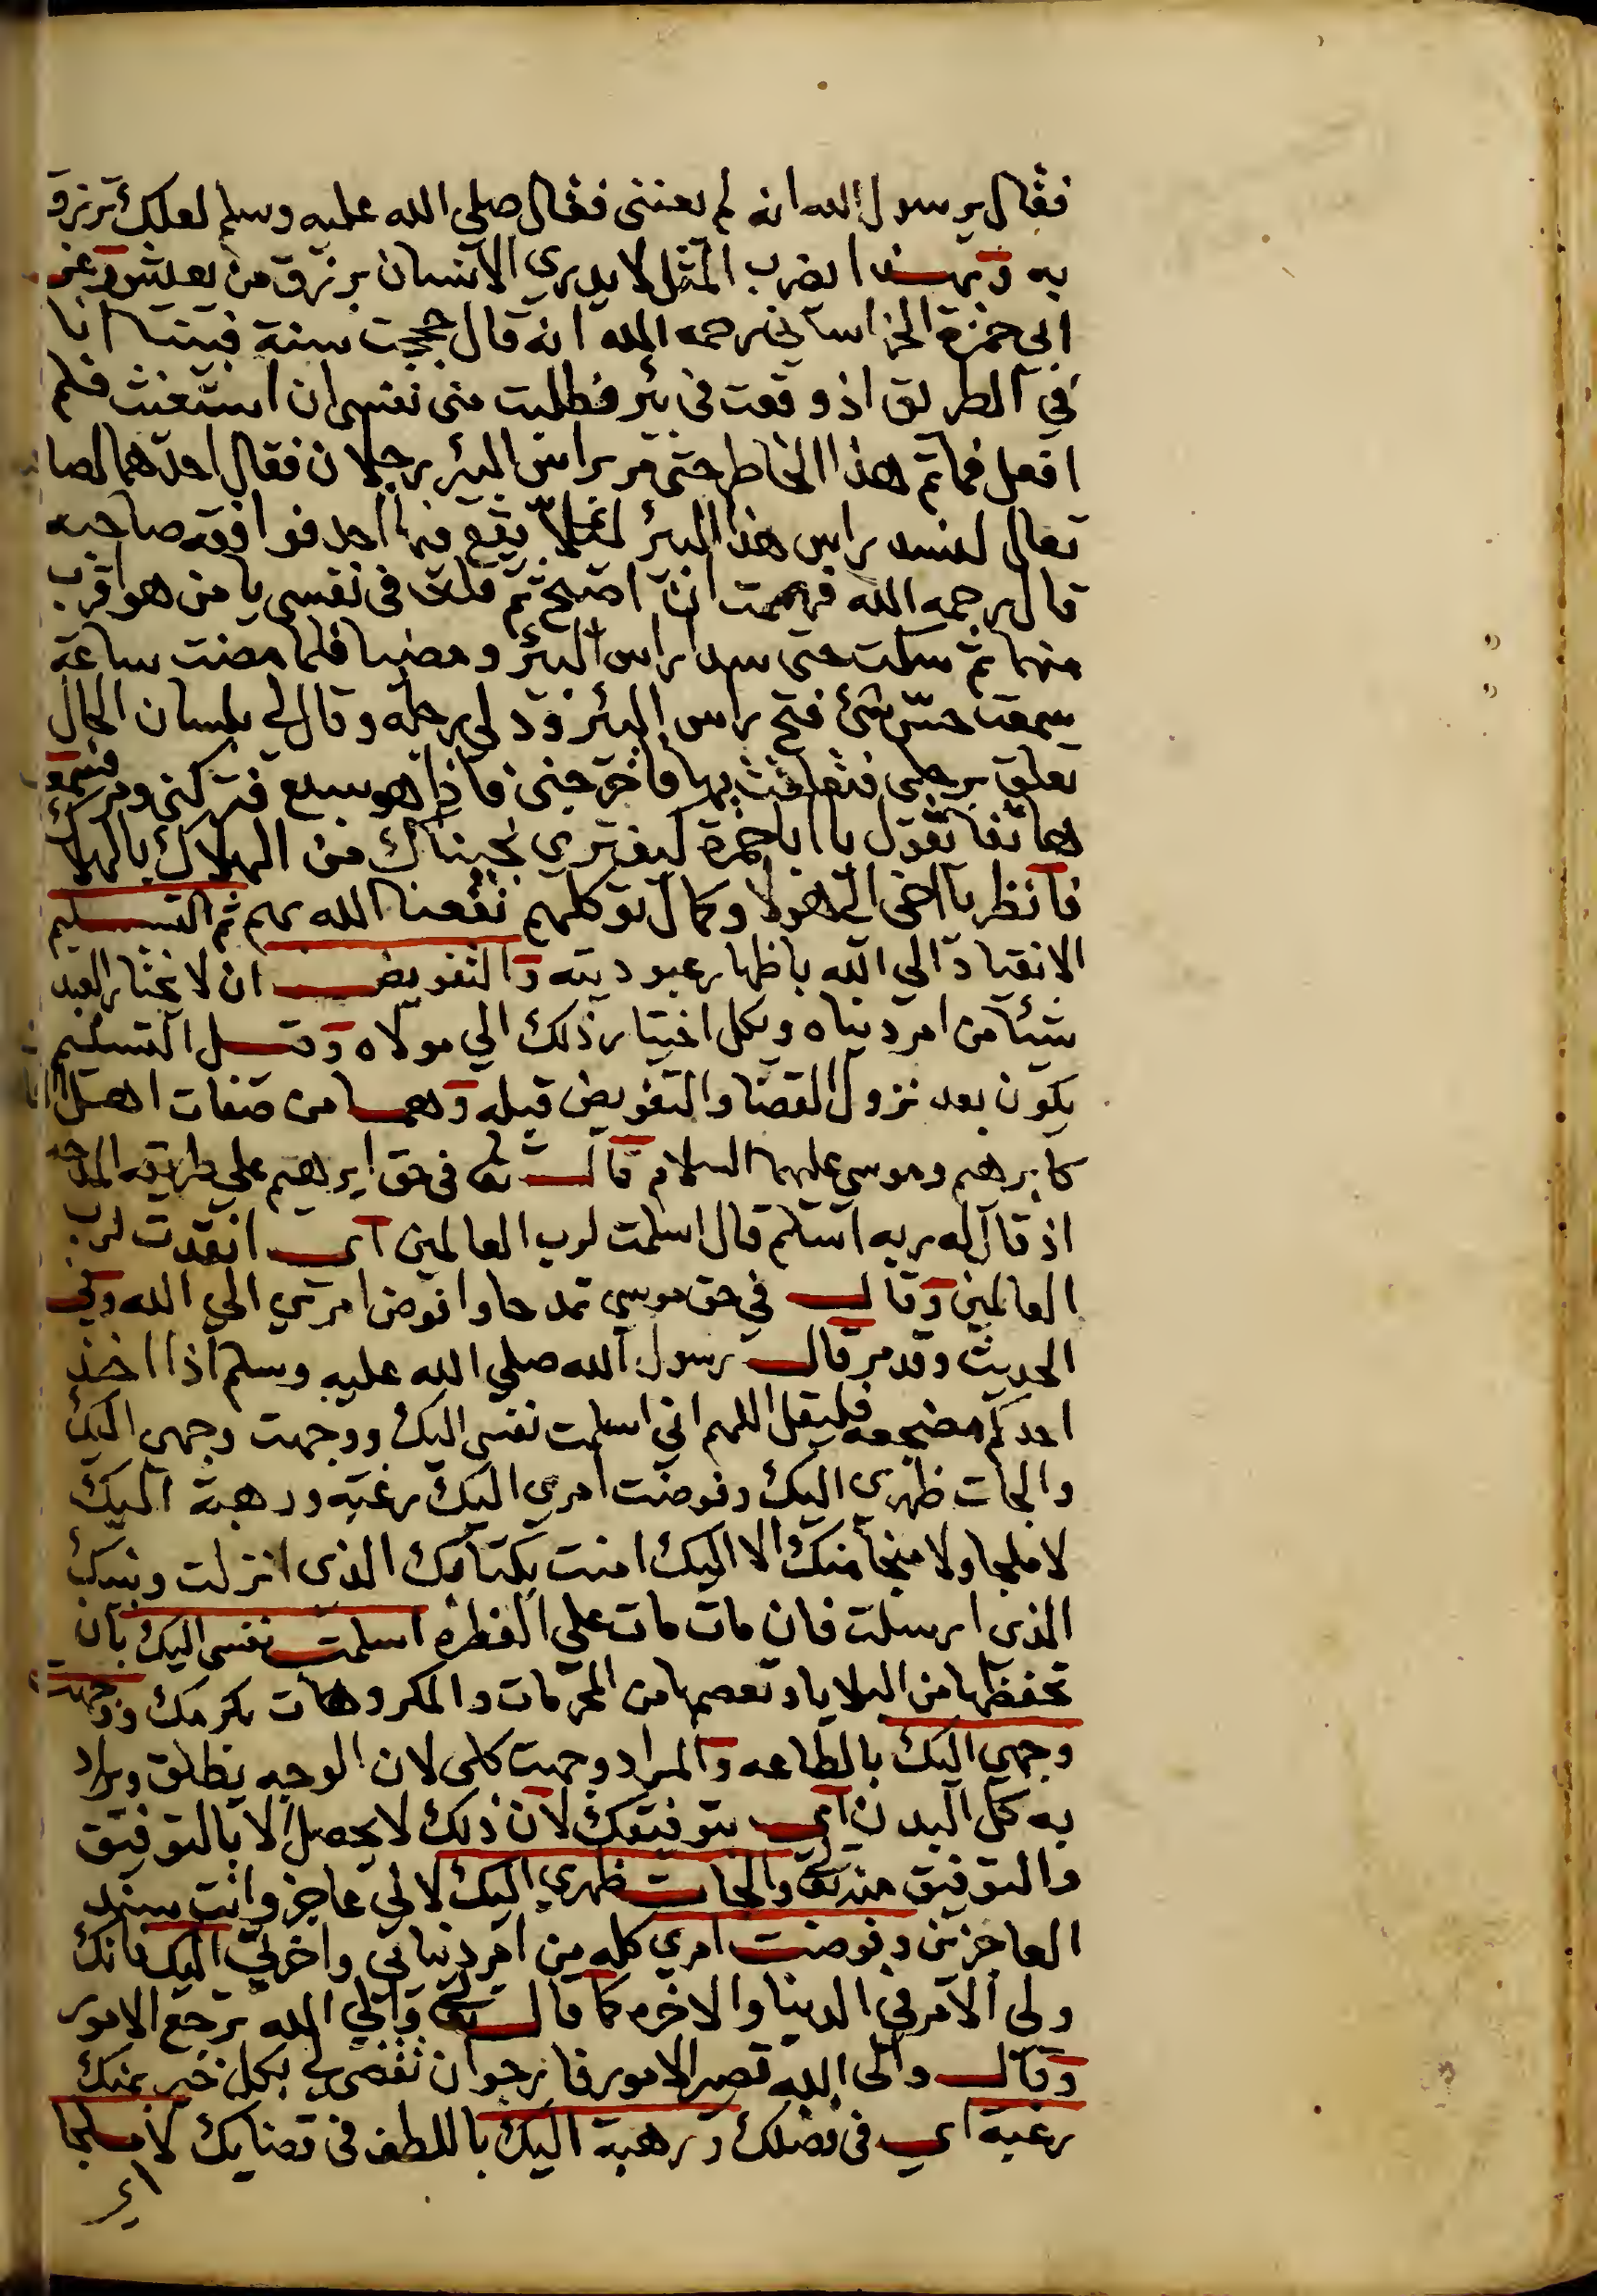 فقال يرسول الله انه لم يعنني فقال صلي الله عليه وسلم لعلك ترزق
به وبهذا يضرب المثل لا يدري الانسان برزق من يعيش وعن
ابي حمزة الخراساني رحمه الله انه قال حججت سنة فبينا انا
في الطريق اذ وقعت في بئر فطلبت مني نفسي ان استغيث فلم
افعل فما تم هذا الخاطر حتي مر براس البئر رجلان فقال احدهما لصا
تعال لنسد راس هذا البئر لئلا يقع فيها احد فوافقه صاحبه
قال رحمه الله فهممت ان اصيح ثم قلت في نفسي يا من هو اقرب
منهما ثم سكت حتي سدا راس البئر ومضيا فلما مضت ساعة
سمعت حس شئ فتح راس البئر ودلي رجله وقال لي بلسان الحال
تعلق برجلي فتعلقت بها فاخرجني فاذا هو سبع فتركني ومر فسمعت
هاتفا يقول يا ابا حمزة كيف تري نجيناك من الهلاك بالهلاك
فانظر يا اخي الي هولا وكمال توكلهم نفعنا الله بهم ثم التسليم
الانقياد الي الله باظهار عبوديته والتفويض ان لا يختار العبد
شيئا من امر دنياه ويكل اختيار ذلك الي مولاه وقيل التسليم
يكون بعد نزول القضا والتفويض قبله وهما من صفات اهل
كابرهيم وموسي عليهما السلام قال تعالى في حق ابرهيم علي طريقة المدحه
اذ قال له ربه اسلم قال اسلمت لرب العالمين اي انقدت لرب
العالمين وقال في حق موسي تمدحا وافوض امري الي الله وفي
الحديث وقد مر قال رسول الله صلي الله عليه وسلم اذا اخذ
احدكم مضجعه فليقل اللهم اني اسلمت نفسي اليك ووجهت وجهي اليك
والجات ظهري اليك وفوضت امري اليك رغبة ورهبة اليك
لا ملجا ولا منجا منك الا اليك امنت بكتابك الذي انزلت ونبيك
الذي ارسلت فان مات مات علي الفطرة اسلمت نفسي اليك بان
تحفظها من البلايا وتعصمها من المحرمات والمكروهات بكرمك ووجهت
وجهي اليك بالطاعه والمراد وجهت كلي لان الوجه يطلق ويراد
به كل البدن اي بتوفيقك لان ذلك لا يحصل الا بالتوفيق
والتوفيق منه تعالى والجات ظهري اليك لاني عاجز وانت سند
العاجزين وفوضت امري كله من امر دنياي واخرتي اليك فانك
ولي الامر في الدنيا والاخرة كما قال تعالى والي الله ترجع الامور
وقال والي الله تصير الامور فارجو ان تقضي لي بكل خير بمنك
رغبة اي في فضلك ورهبة اليك باللطف في قضايك لا ملجا
اي